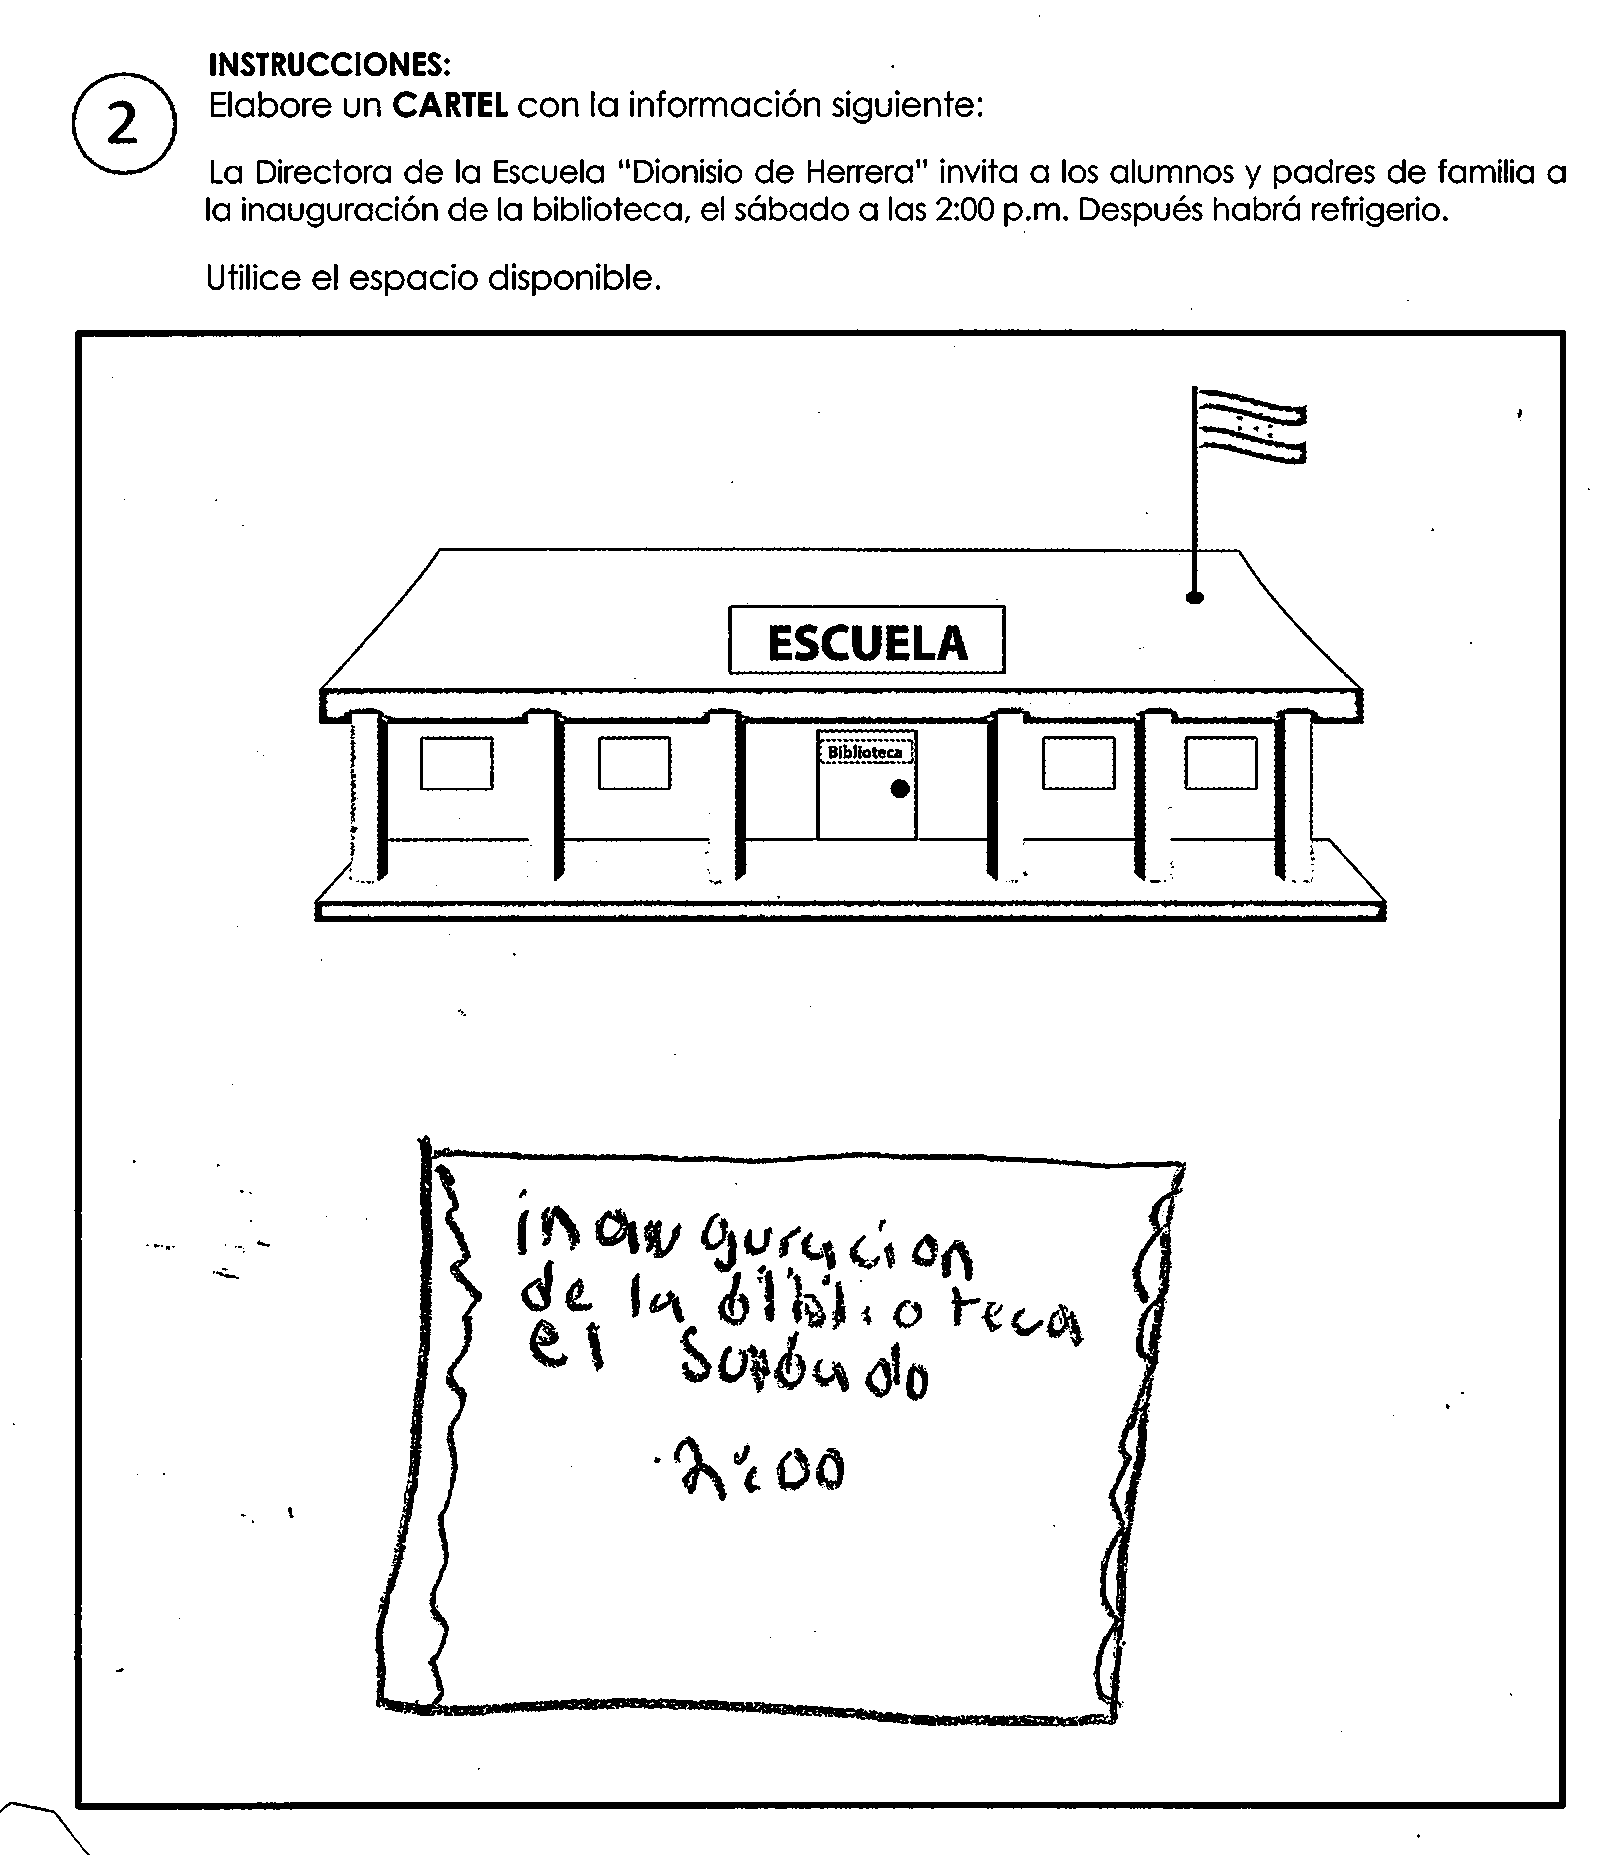 INSTRUCCIONES:
2
Elabore un CARTEL con la información siguiente:
La Directora de la Escuela "Dionisio de Herrera" invita a los alumnos y padres de familia a
la inauguración de la biblioteca, el sábado a las 2:00 p.m. Después habrá refrigerio.
Utilice el espacio disponible.
ESCUELA
Biblioteca
inauguracion
de la biblioteca
el sabado
2:00